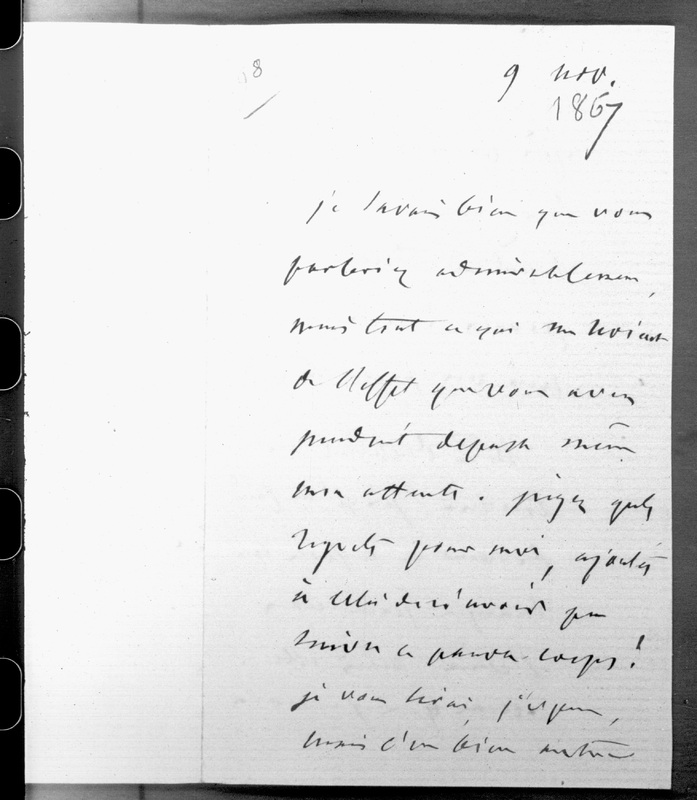 8
9 nov.
1867
je savais bien que vous
parleriez admirablement,
mais tout ce qui me revient
de l'effet que vous avez
produit dépasse même
mon attente. jugez quels
regrets pour moi, ajoutés
à celui de n'avoir pu
suivre ce pauvre corps!
je vous lirai, j'espère,
mais c'est bien autre